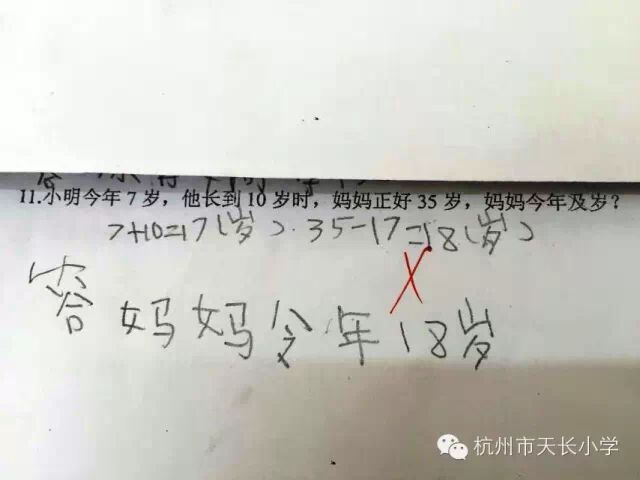 11.小明今年7岁，他长到10岁时，妈妈正好35岁，妈妈今年及岁？
7+10=17(岁).35-17=18(岁)
答妈妈今年18岁
杭州市天长小学